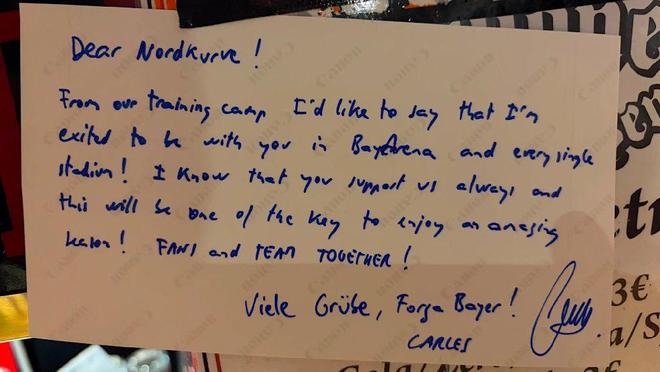 Dear Nordkurve !
From our training camp I'd like to say that I'm
exited to be with you in BayArena and every single
stadium! I know that you support us always and
this will be one of the key to enjoy an amazing
season! FANS and TEAM TOGETHER!
Viele Grüße, Forza Bayer!
CARLES
3€
a/S